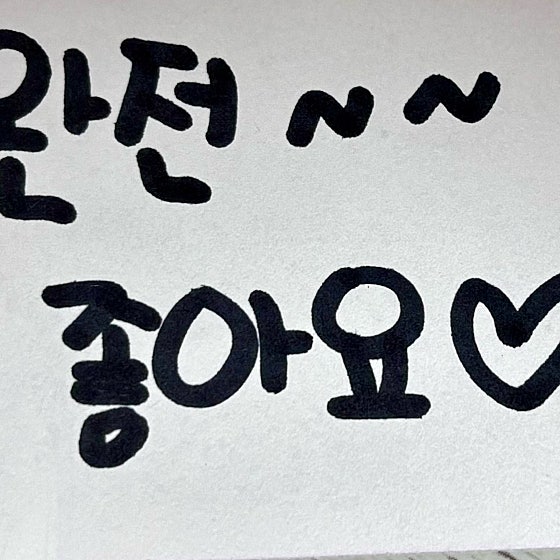 완전~~
좋아요♡